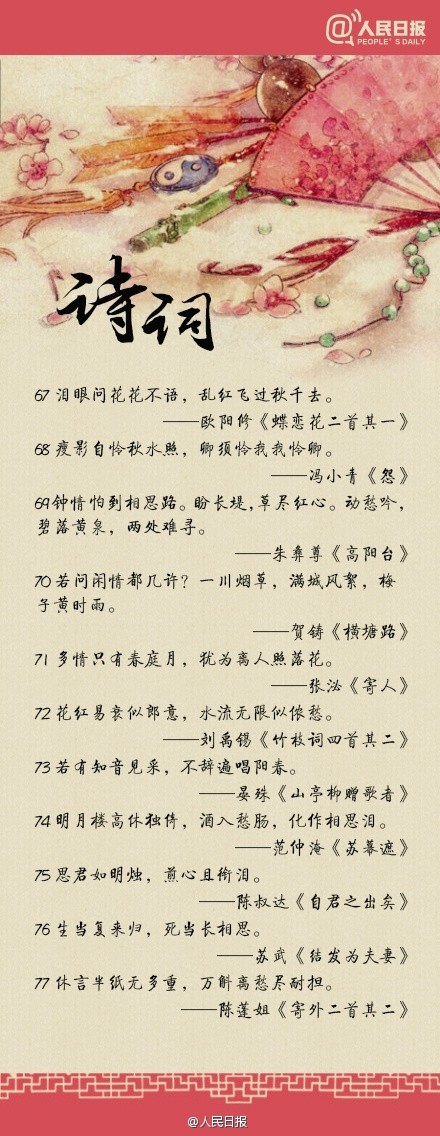 @人民日报
PEOPLE'S DAILY
诗词
67 泪眼问花花不语，乱红飞过秋千去。
——欧阳修《蝶恋花二首其一》
68 瘦影自怜秋水照，卿须怜我我怜卿。
——冯小青《怨》
69 钟情怕到相思路。盼长堤,草尽红心。动愁吟，
碧落黄泉，两处难寻。
——朱彝尊《高阳台》
70 若问闲情都几许？一川烟草，满城风絮，梅
子黄时雨。
——贺铸《横塘路》
71 多情只有春庭月，犹为离人照落花。
——张泌《寄人》
72 花红易衰似郎意，水流无限似侬愁。
——刘禹锡《竹枝词四首其二》
73 若有知音见采，不辞遍唱阳春。
——晏殊《山亭柳赠歌者》
74 明月楼高休独倚，酒入愁肠，化作相思泪。
——范仲淹《苏幕遮》
75 思君如明烛，煎心且衔泪。
——陈叔达《自君之出矣》
76 生当复来归，死当长相思。
——苏武《结发为夫妻》
77 休言半纸无多重，万斛离愁尽耐担。
——陈蓬姐《寄外二首其二》
@人民日报